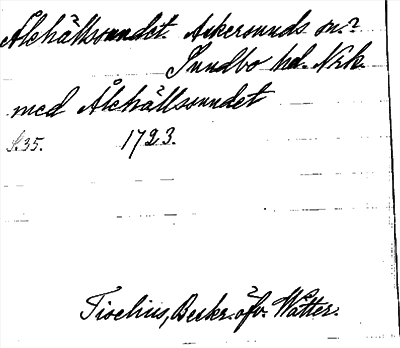 Åkehällsundet. Askersunds sn.?
Sundbo hd. Nrk.
med Åkehällsundet
S. 35. 1723.
Tiselius, Beskr. öfv. Wätter.